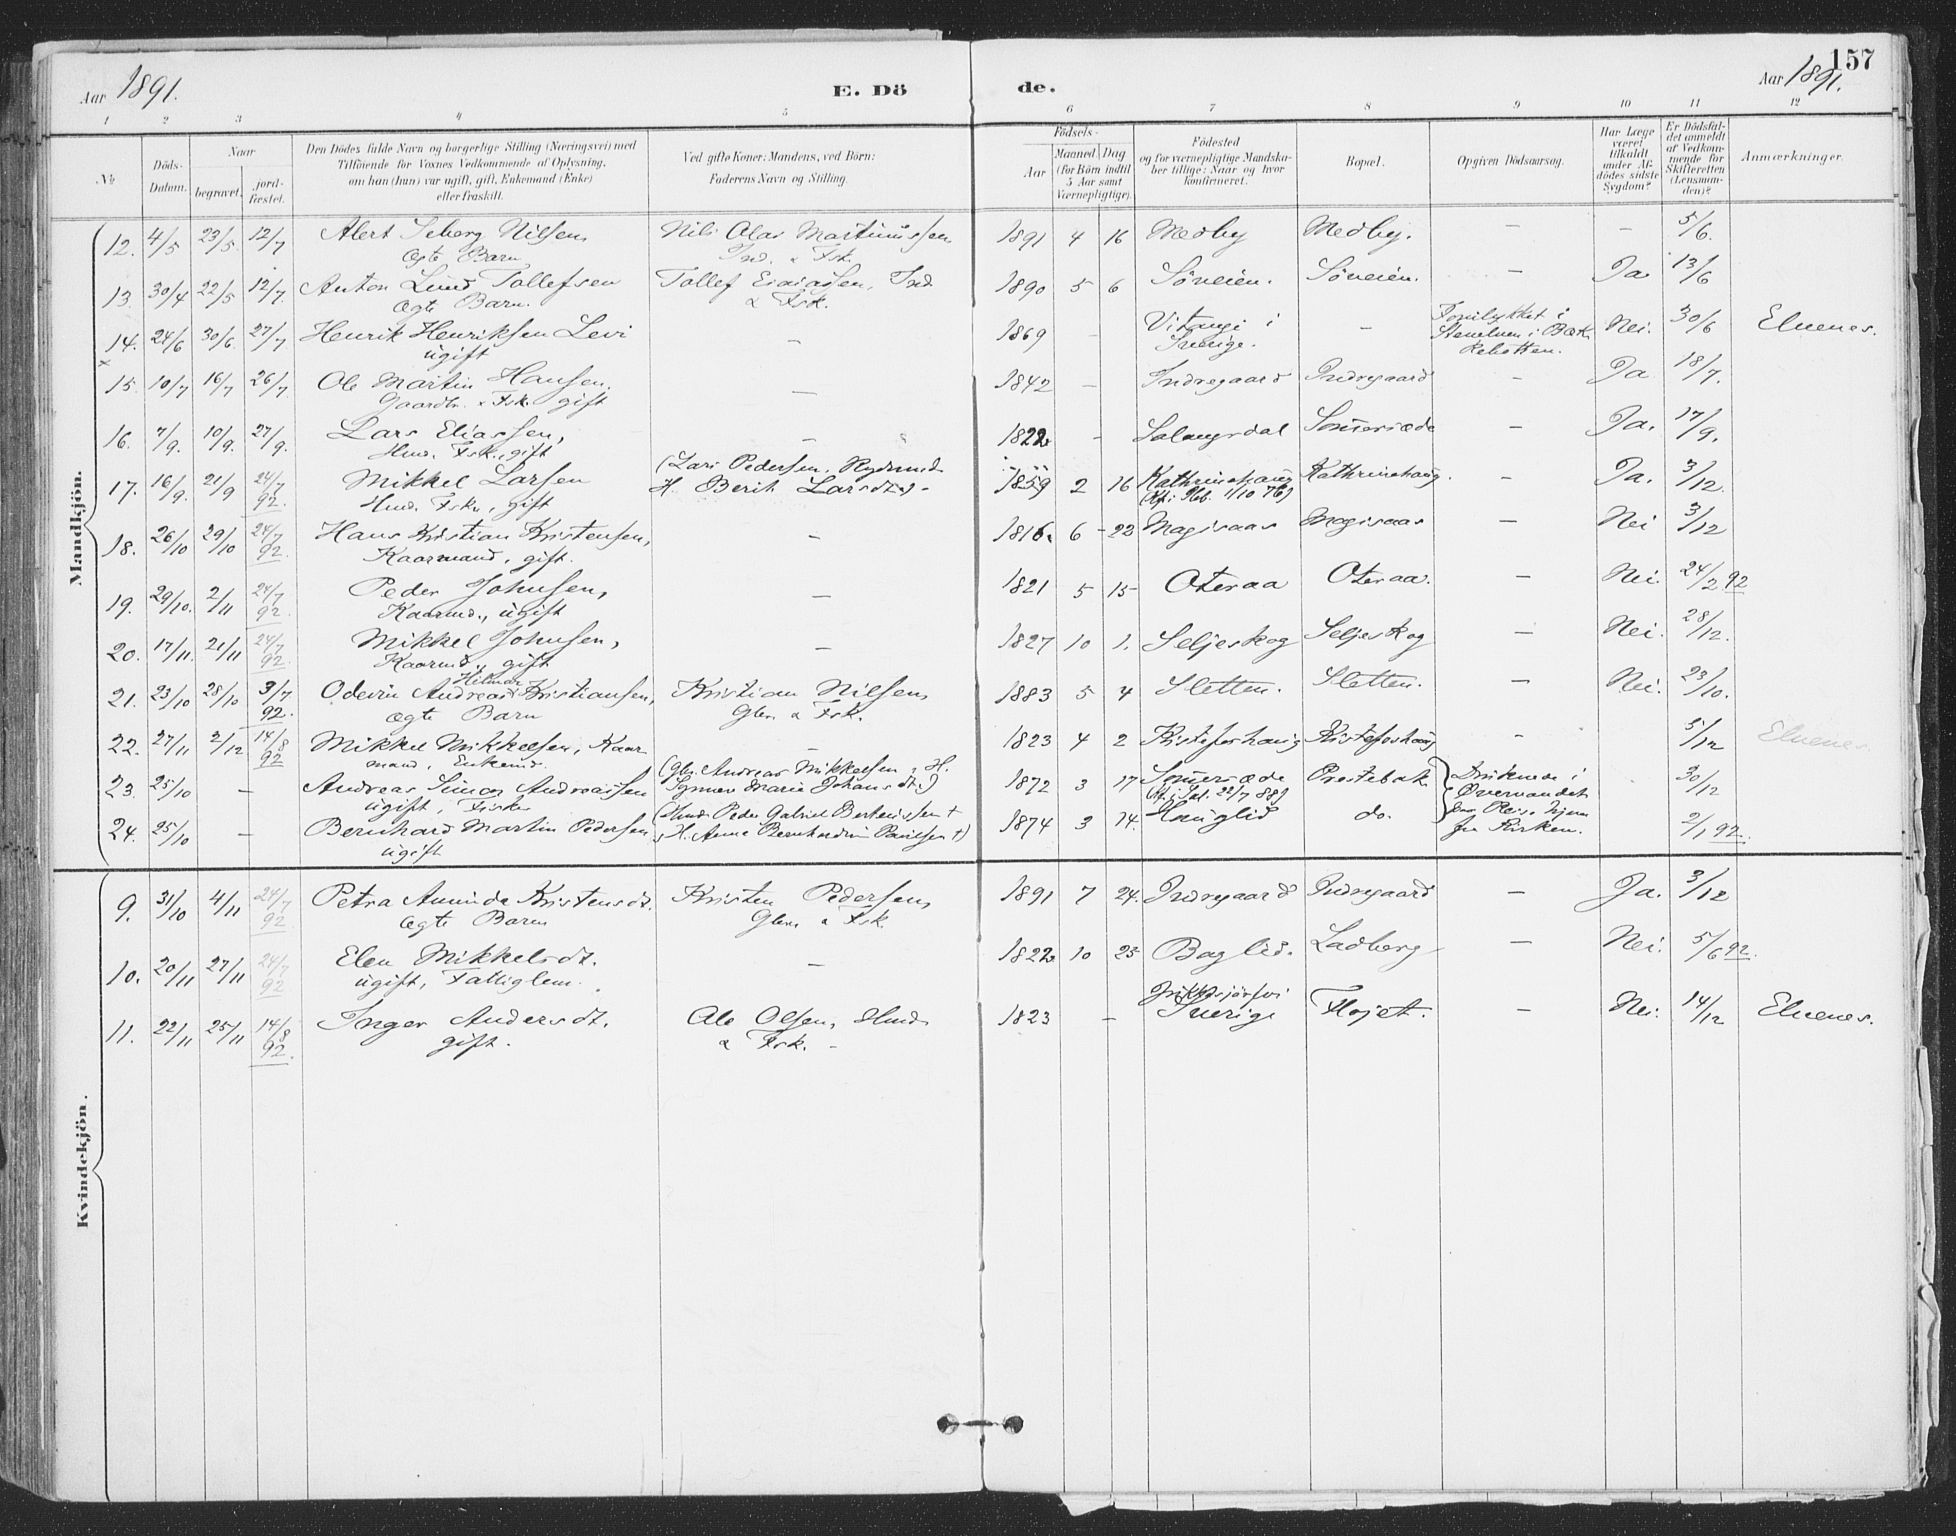 157
Aar 1891. E. Dö de. Aar 1891.
1 2 3 4 5 6 7 8 9 10 11 12
№
Döds-Datum.
Naar
begravet. jordfæstet.
Den Dödes fulde Navn og borgerlige Stilling (Næringsvei) med
Tilföiende for Voxnes Vedkommende af Oplysning,
om han (hun) var ugift, gift, Enkemand (Enke)
eller fraskilt.
Ved gifte Koner: Mandens, ved Börn:
Faderens Navn og Stilling.
Födsels-
Aar Maaned Dag
(for Börn indtil
5 Aar samt
Værnepligtige).
Födested
og for værnepligtige Mandska-
ber tillige: Naar og hvor
konfirmeret.
Bopæl.
Opgiven Dödsaarsag.
Har Læge
været
tilkaldt
under Af-
dödes sidste
Sygdom?
Er Dödsfal-
det anmeldt
af Vedkom-
mende for
Skifteretten
(Lensman-
den)?
Anmærkninger.
Mandkjön.
12. 4/5 23/5 12/7 Alert Seberg Nilsen Nils Olai Martinussen 1891 4 16 Medby Medby. – – 5/6.
ægte Barn Ind. & Fsk.
13 30/4 22/5 12/7. Anton Lund Tollefsen Tollef Esaiassen, Ind 1890 5 6 Söveien. Söveien. – Ja 13/6
ægte Barn. & Fsk.
14. 24/6 30/6. 27/7 Henrik Henriksen Levi – 1869 Vitangi i Sverige. – Forulykket i Nei. 30/6 Elvenes.
ugift
15. 10/7 16/7 26/7. Ole Martin Hansen. – 1842 – Indregaard Indregaard – Ja 18/7.
Gaardbr. & Fsk. gift
16. 7/9. 10/9. 27/9. Lars Eliassen, – 1822 – Salangsdal – Ja. 17/9.
Hmd. Fsk., gift
17. 16/9. 21/9 24/7 92. Mikkel Larsen (Lars Pedersen, 1859 2 16 Kathrinehaug Kathrinehaug. – Ja. 3/12.
Hmd. Fsk., gift H. Berit Larsdt.) (Kf. i Ibb. 1/10 76)
18. 26/10 29/10 24/7 92. Hans Kristian Kristensen, – 1816. 6 – 22 Magisaas Magisaas – Nei 3/12
Kaarmand, gift.
19. 29/10. 2/11 24/7 92. Peder Johnsen, – 1821 5 15 Oteraa Oteraa. – Nei. 24/2 92
Kaarmd., ugift
20. 17/11. 21/11 24/7 92. Mikkel Johnsen, – 1827 10 1. Seljeskog Seljeskog – Nei. 28/12.
Kaarmd., gift
21. 23/10 28/10 3/7 92. Odevin Andreas Hilmar Kristiansen, Kristian Nilsen, 1883 5 4 Sletten. Sletten. – Nei. 23/10.
ægte Barn Gbr. & Fsk.
22. 27/11 2/12 14/8 92 Mikkel Mikkelsen, Kaar – 1823 4 2 Kristofershaug Kristofershaug – 5/12 Elvenes.
mand, Enkemd.
23. 25/10 – Andreas Simon Andreassen (Gbr. Andreas Mikkelsen, H. 1872 3 17 Prestebak Druknede i 30/12
ugift, Fisker Marie Johansdt.) (Kf. i Sal. 22/7 88) Övervandet
24. 25/10 – Bernhard Martin Pedersen (Hmd. Peder Gabriel † 1874 3 14. Hauglid do. paa Reise hjem 2/1 92.
ugift H. Anne Bernhardine Paulsen †) fra Kirken.
Kvindekjön.
9. 31/10 4/11 24/7 92. Petra Aminda Kristensdt. Kristen Pedersen, 1891 7 24. Indregaard Indregaard – Ja. 3/12
ægte Barn Gbr. & Fsk.
10. 20/11 27/11 24/7 92 Elen Mikkelsdt. – 1822 10 25 Baglid. Ladberg – Nei. 5/6 92.
ugift, Fattiglem.
11. 22/11 25/11 14/8 92. Inger Andersdt. Ole Olsen, Hmd. 1823 – Sverige Flöjet. – Nei. 14/12 Elvenes.
gift. & Fsk.